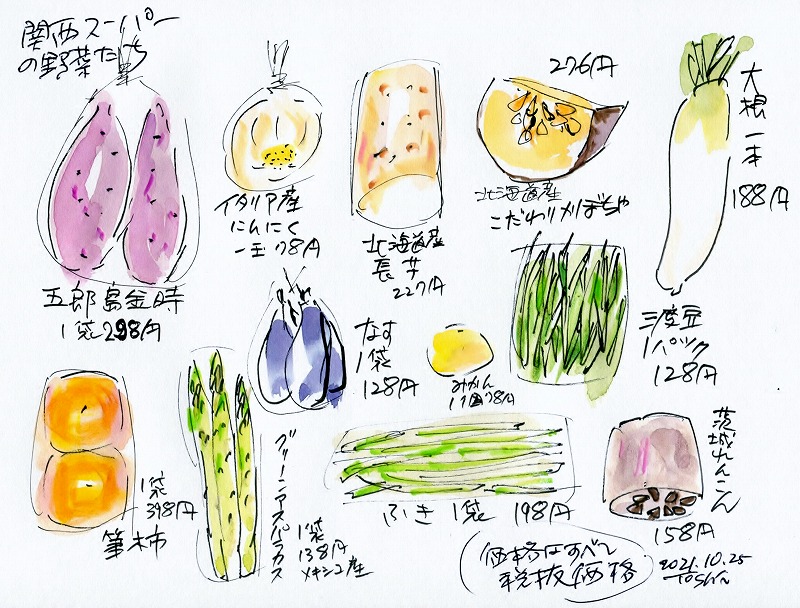 関西スーパー
の野菜たち
五郎島金時
1袋298円
イタリア産
にんにく
一玉78円
北海道産
長芋
227円
276円
北海道産
こだわりかぼちゃ
大根一本
188円
なす
1袋
128円
みかん
1個78円
三度豆
1パック
128円
1袋
398円
筆柿
グリーンアスパラガス
1袋
138円
メキシコ産
ふき 1袋 198円
茨城れんこん
158円
価格はすべて
税抜価格
2021.10.25
Toshi